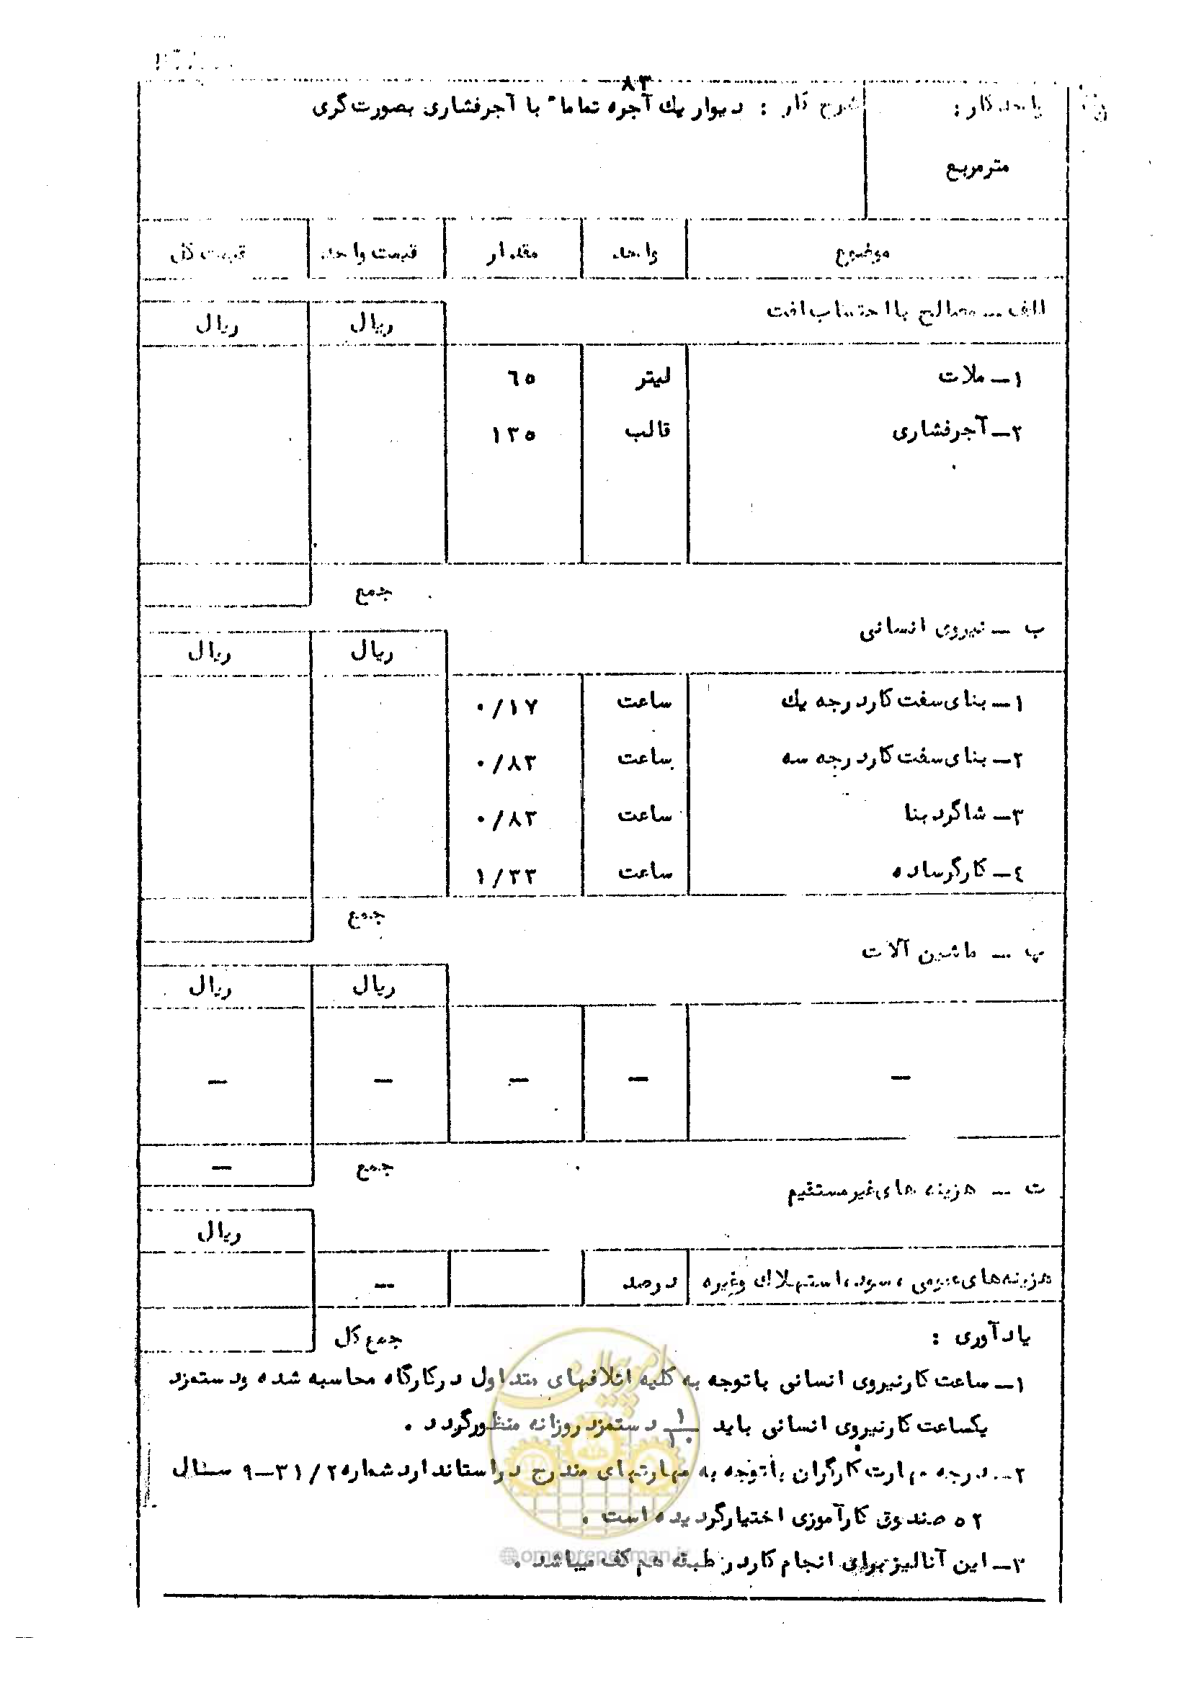 ۸۳
واحد کار :
شرح کار : دیوار یك آجره تماما" با آجرفشاری بصورت گری
مترمربع
موضوع واحد مقدار قیمت واحد قیمت کل
الف ــ مصالح با احتساب افت
ریال ریال
۱ــ ملات لیتر ٦٥
۲ــ آجرفشاری قالب ۱۳٥
جمع
ب ــ نیروی انسانی
ریال ریال
۱ــ بنای سفت کار درجه یك ساعت ۰/۱۷
۲ــ بنای سفت کار درجه سه ساعت ۰/۸۳
۳ــ شاگرد بنا ساعت ۰/۸۳
٤ــ کارگر ساده ساعت ۱/۳۳
جمع
پ ــ ماشین آلات
ریال ریال
ــ ــ ــ ــ ــ
جمع ــ
ت ــ هزینه های غیر مستقیم
ریال
هزینه‌های عمومی ، سود، استهلاك وغیره درصد ــ
جمع کل
یادآوری :
۱ــ ساعت کار نیروی انسانی باتوجه به کلیه اتلافهای متداول در کارگاه محاسبه شده و دستمزد
یکساعت کار نیروی انسانی باید ۱/۱۰ دستمزد روزانه منظور گردد .
۲ــ درجه مهارت کارگران باتوجه به مهارتهای مندرج در استاندارد شماره ۹ــ۳۱/۲ سال
٥۲ صندوق کارآموزی اختیار گردیده است .
۳ــ این آنالیز برای انجام کار در طبقه هم کف میباشد .
امور پیمان
@omoorepeyman.ir